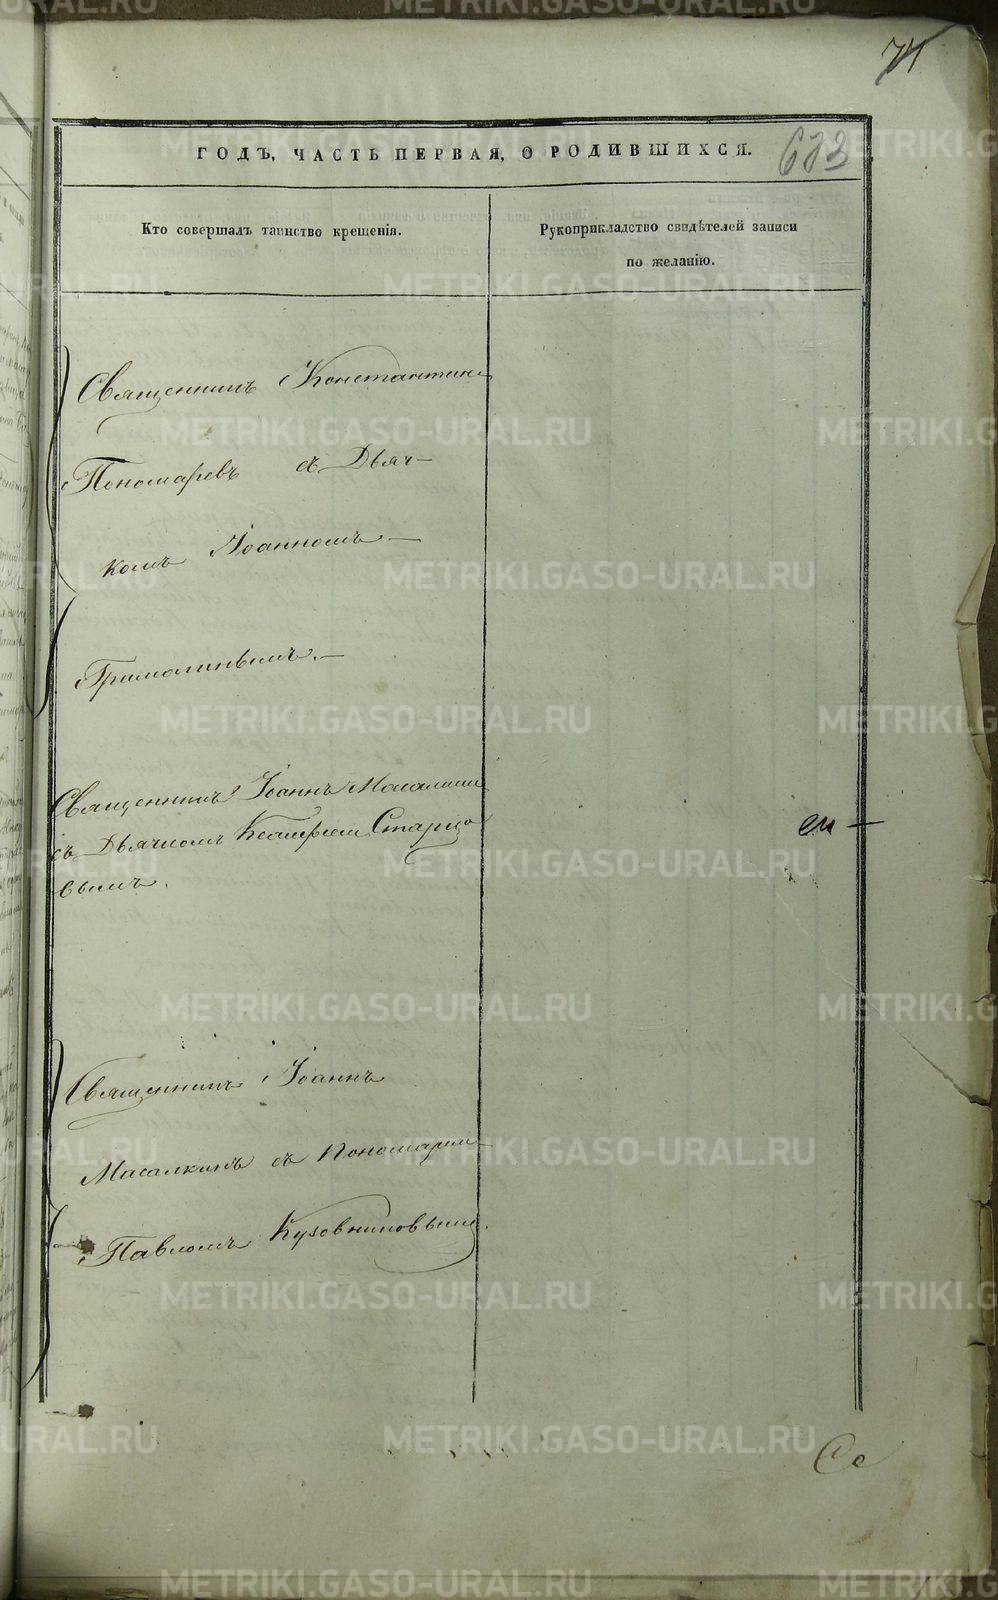 71
ГОДЪ, ЧАСТЬ ПЕРВАЯ, О РОДИВШИХСЯ.
673
Кто совершалъ таинство крещенія.
Рукоприкладство свидѣтелей записи
по желанію.
Священникъ Константинъ
Пономаревъ съ Дьяч-
комъ Іоанномъ
Священникъ Іоаннъ Масалкин
съ Дьячкомъ Старцо
вымъ.
Священникъ Іоаннъ
Масалкинъ съ Пономарем
Павломъ Кузовниковымъ.
METRIKI.GASO-URAL.RU